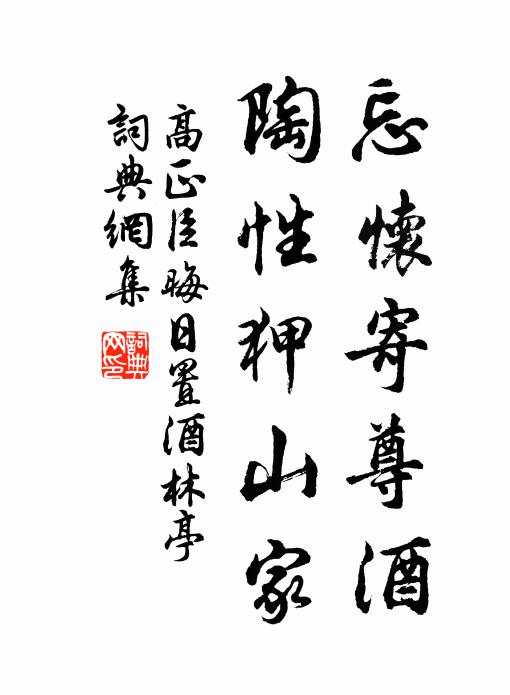 忘懷寄尊酒
陶性狎山家
高正臣晦日置酒林亭
詞典網集
詞典網印